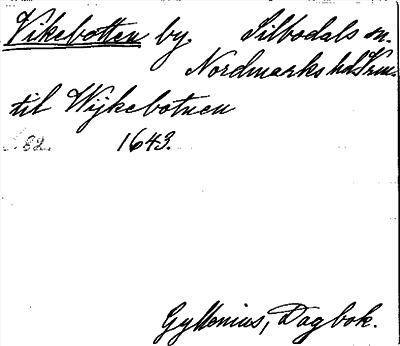 Vikebotten by Silbodals sn.
Nordmarks hd Vrm.
til Wijkebotnen
s. 82. 1643.
Gyllenius, Dagbok.